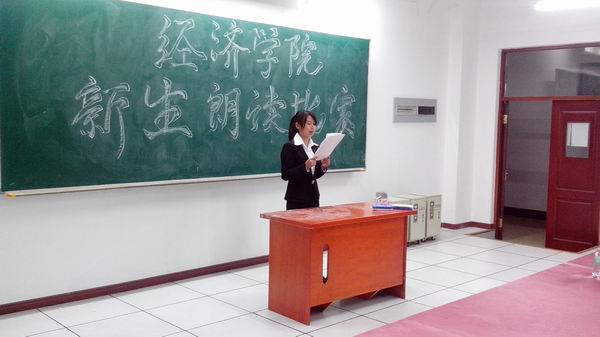 经济学院
新生朗读比赛